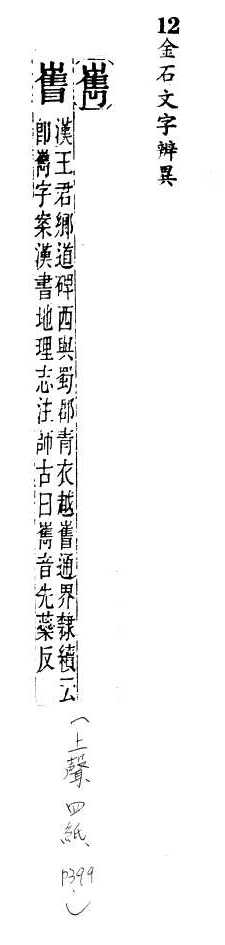 12金石文字辨異
（巂）
𮥼漢王君鄉道碑西與蜀郡青衣越𮥼通界隸續云
即巂字案漢書地理志注師古曰巂音先蘂反
（上聲四紙
P399）